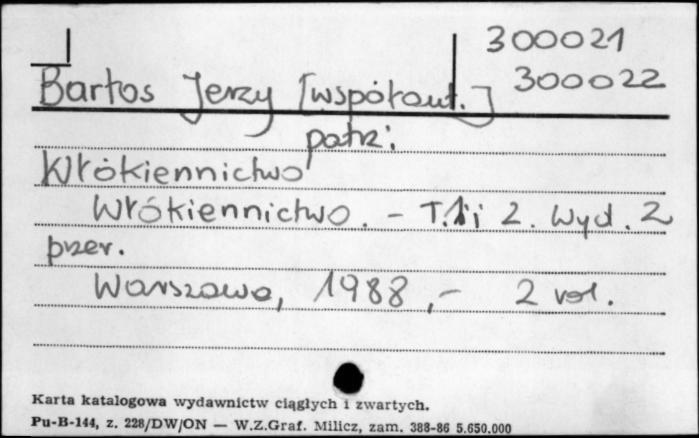 300021
Bartos Jerzy [współaut.] 300022
patrz:
Włókiennictwo
Włókiennictwo. - T.1 i 2. Wyd. 2
przer.
Warszawa, 1988,- 2 vol.
Karta katalogowa wydawnictw ciągłych i zwartych.
Pu-B-144, z. 228/DW/ON — W.Z.Graf. Milicz, zam. 388-86 5.650.000